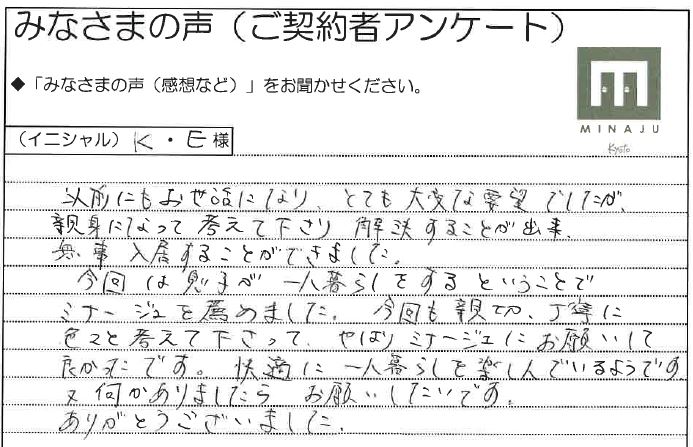 みなさまの声（ご契約者アンケート）
◆「みなさまの声（感想など）」をお聞かせください。
MINAJU
Kyoto
（イニシャル）K・E様
以前にもお世話になり、とても大変な要望でしたが、
親身になって考えて下さり解決することが出来、
無事入居することができました。
今回は息子が一人暮らしをするということで
ミナージュを薦めました。今回も親切、丁寧に
色々と考えて下さって、やはりミナージュにお願いして
良かったです。快適に一人暮らしを楽しんでいるようです。
又何かありましたらお願いしたいです。
ありがとうございました。